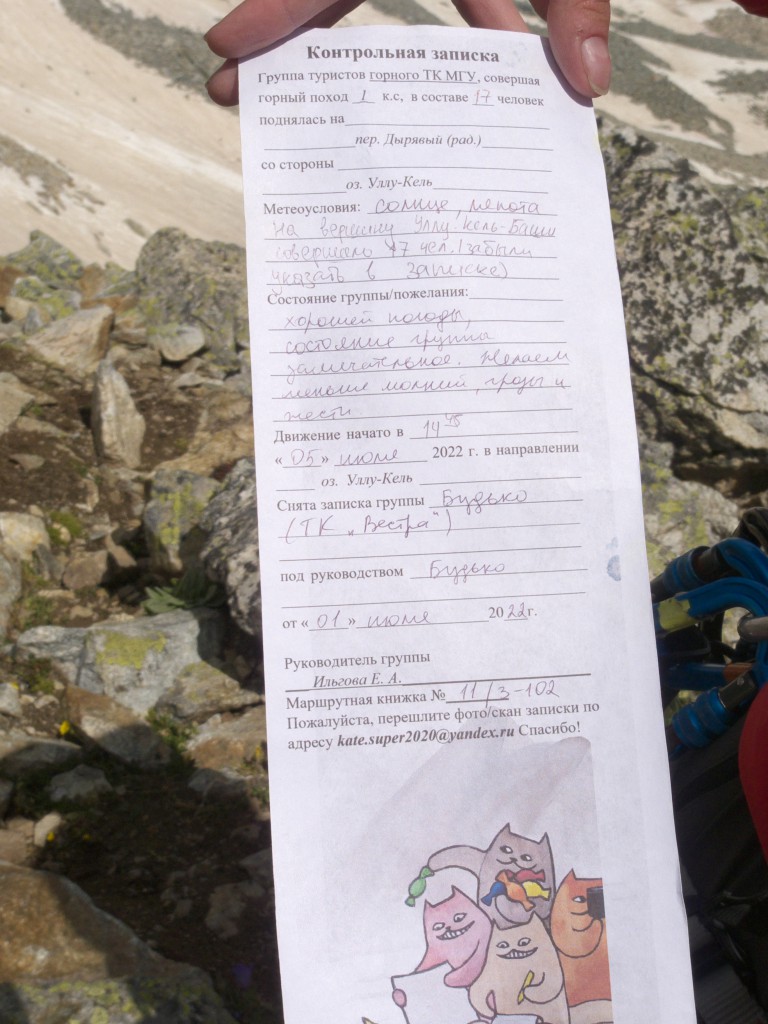 Контрольная записка
Группа туристов горного ТК МГУ, совершая
горный поход 1 к.с, в составе 17 человек
поднялась на
пер. Дырявый (рад.)
со стороны
оз. Уллу-Кель
Метеоусловия: солнце, лепота
На вершину Уллу-Кель-Баши
совершено 17 чел. (забыли
указать в записке)
Состояние группы/пожелания:
хорошей погоды,
состояние группы
замечательное. Желаем
меньше молний, грозы и
жести
Движение начато в 14 45
«05» июля 2022 г. в направлении
оз. Уллу-Кель
Снята записка группы Будько
(ТК „Вестра")
под руководством Будько
от «01» июля 2022г.
Руководитель группы
Ильгова Е. А.
Маршрутная книжка № 11/3-102
Пожалуйста, перешлите фото/скан записки по
адресу kate.super2020@yandex.ru Спасибо!